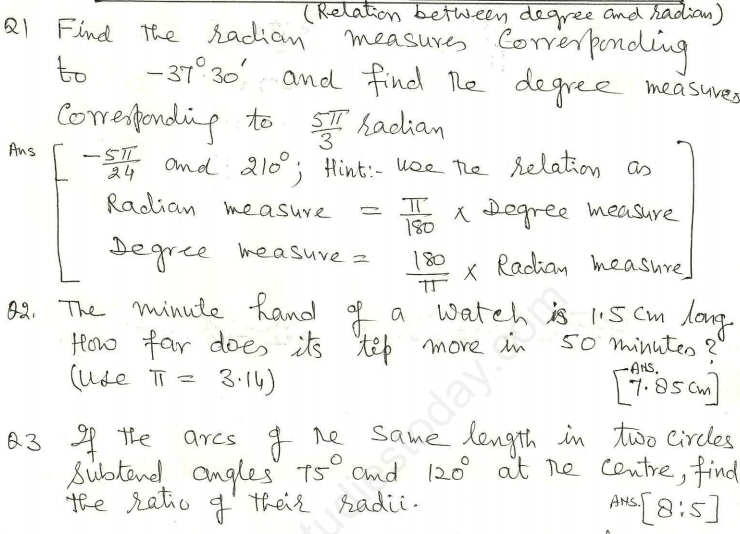 (Relation between degree and radian)
Q1 Find the radian measures Corresponding
to -37°30′ and find the degree measures
Corresponding to 5π/3 radian
Ans [ -5π/24 and 210°; Hint:- use the relation as
Radian measure = π/180 × Degree measure
Degree measure = 180/π × Radian measure]
Q2. The minute hand of a watch is 1.5 cm long.
How far does its tip more in 50 minutes?
(Use π = 3.14)
ANS. [7.85 cm]
Q3 If the arcs of the same length in two circles
Subtend angles 75° and 120° at the centre, find
the ratio of their radii.
ANS. [8:5]
studiestoday.com